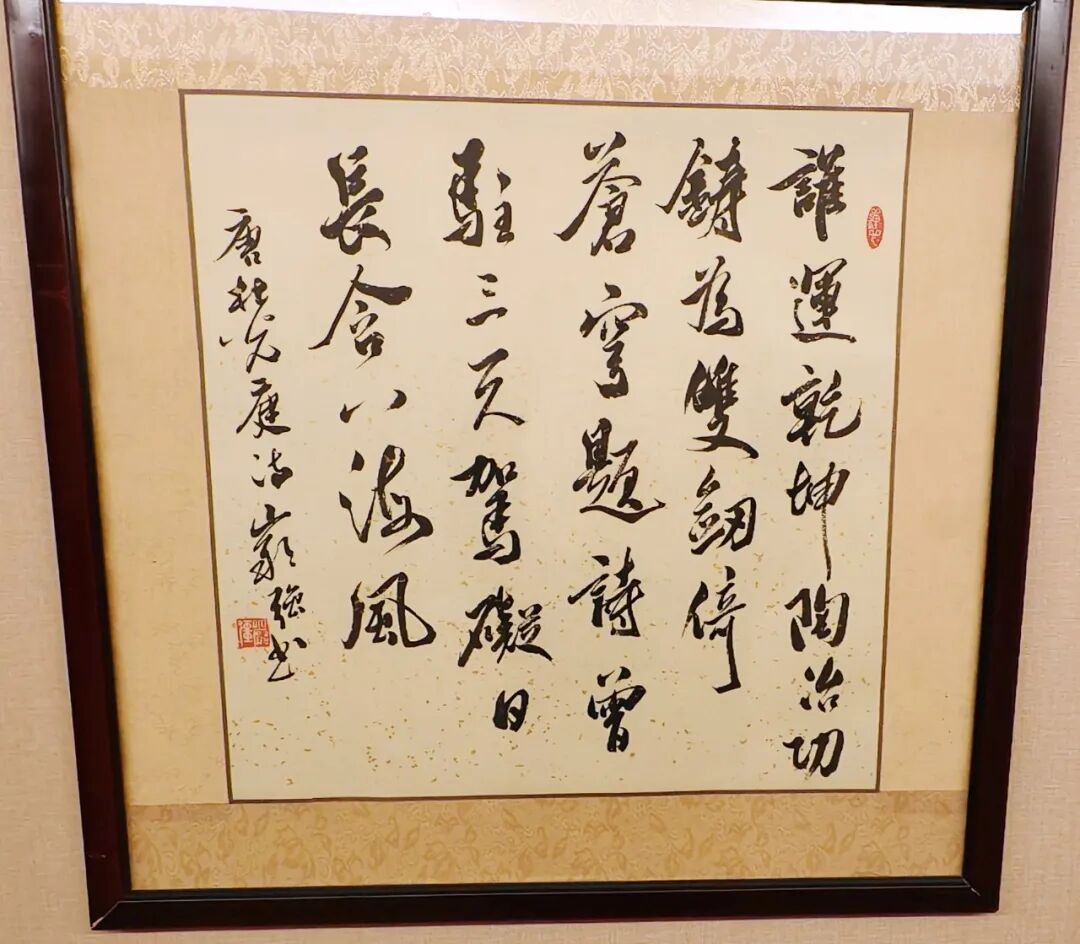 誰運乾坤陶冶功
鑄為雙劍倚
蒼穹題詩曾
駐三天駕礙日
長含八海風
唐杜光庭詩嚴強書